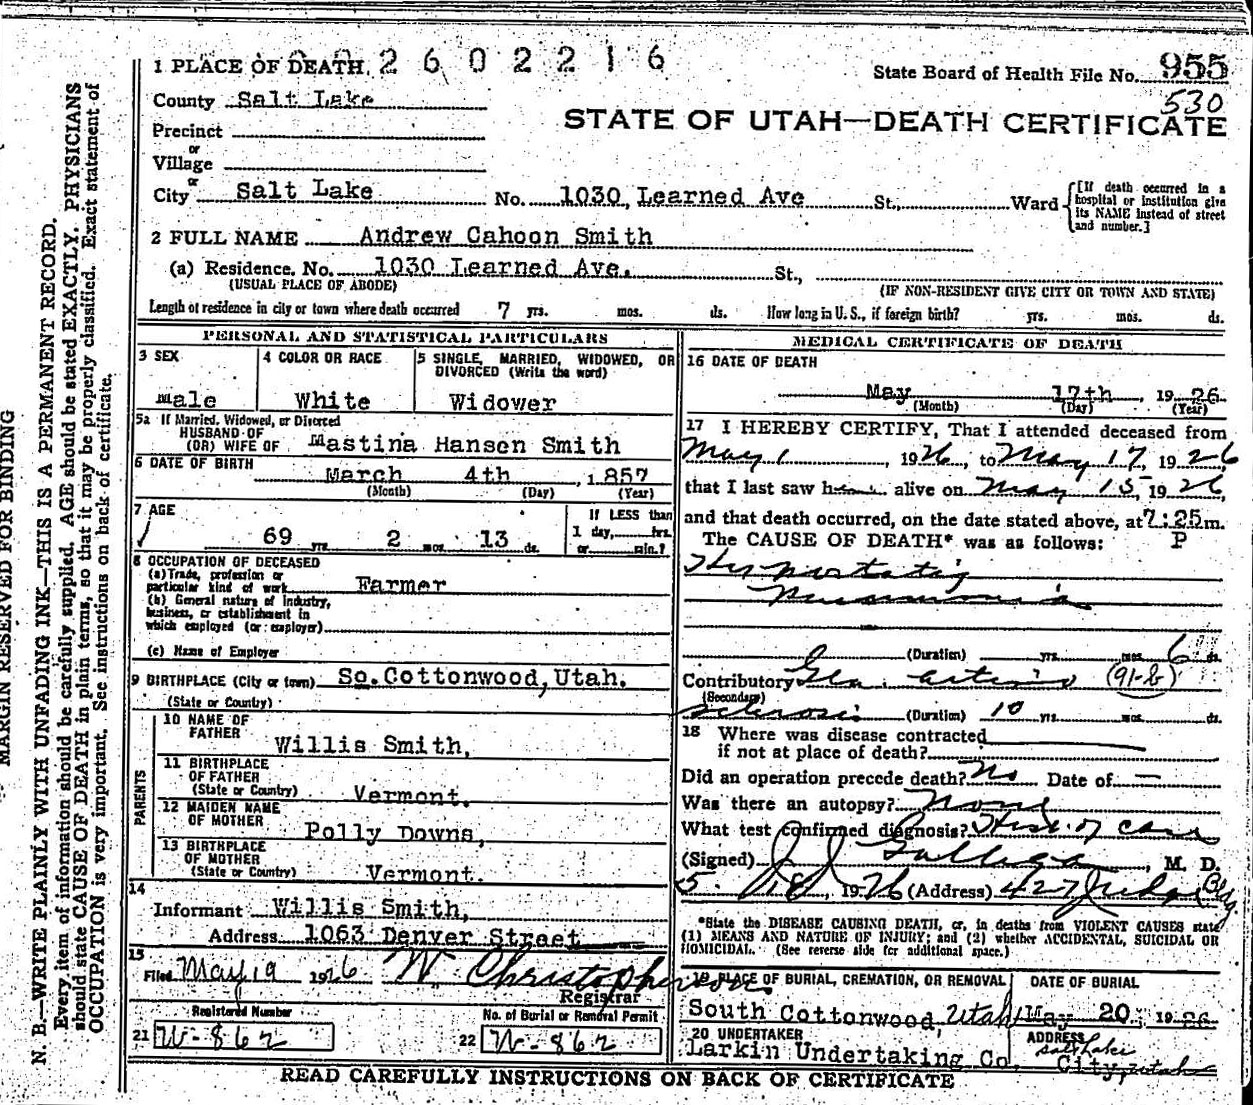 1 PLACE OF DEATH 2602216
State Board of Health File No. 955
530
County Salt Lake
STATE OF UTAH—DEATH CERTIFICATE
Precinct
or
Village
or
City Salt Lake No. 1030 Learned Ave St., Ward {[If death occurred in a hospital or institution give its NAME instead of street and number.]
2 FULL NAME Andrew Cahoon Smith
(a) Residence. No. 1030 Learned Ave. St.,
(USUAL PLACE OF ABODE) (IF NON-RESIDENT GIVE CITY OR TOWN AND STATE)
Length of residence in city or town where death occurred 7 yrs. mos. ds. How long in U. S., if foreign birth? yrs. mos. ds.
PERSONAL AND STATISTICAL PARTICULARS
3 SEX 4 COLOR OR RACE 5 SINGLE, MARRIED, WIDOWED, OR
DIVORCED (Write the word)
Male White Widower
5a If Married, Widowed, or Divorced
HUSBAND OF
(OR) WIFE OF Mastina Hansen Smith
6 DATE OF BIRTH March 4th, 1857
(Month) (Day) (Year)
7 AGE If LESS than
69 yrs. 2 mos. 13 ds. 1 day, hrs.
or min.?
8 OCCUPATION OF DECEASED
(a) Trade, profession or
particular kind of work Farmer
(b) General nature of industry,
business, or establishment in
which employed (or employer)
(c) Name of Employer
9 BIRTHPLACE (City or town) So. Cottonwood, Utah.
(State or Country)
PARENTS
10 NAME OF
FATHER Willis Smith,
11 BIRTHPLACE
OF FATHER
(State or Country) Vermont.
12 MAIDEN NAME
OF MOTHER Polly Downs,
13 BIRTHPLACE
OF MOTHER
(State or Country) Vermont.
14
Informant Willis Smith,
Address 1063 Denver Street
15
Filed May 19 1926 W. Christopherson
Registrar
Registered Number No. of Burial or Removal Permit
21 W-862 22 W-862
MEDICAL CERTIFICATE OF DEATH
16 DATE OF DEATH
May 17th, 1926
(Month) (Day) (Year)
17 I HEREBY CERTIFY, That I attended deceased from
May 1, 1926, to May 17, 1926,
that I last saw h alive on May 15, 1926,
and that death occurred, on the date stated above, at 7:25 m.
The CAUSE OF DEATH* was as follows: P
Hypostatic
Pneumonia
(Duration) yrs. mos. 6 ds.
Contributory Gen. arterio (91-b)
(Secondary)
sclerosis (Duration) 10 yrs. mos. ds.
18 Where was disease contracted
if not at place of death?
Did an operation precede death? No Date of —
Was there an autopsy? None
What test confirmed diagnosis? Hist. of case
(Signed) J J Galligan, M. D.
5. 18, 1926 (Address) 427 Judge Bldg
*State the DISEASE CAUSING DEATH, or, in deaths from VIOLENT CAUSES state
(1) MEANS AND NATURE OF INJURY; and (2) whether ACCIDENTAL, SUICIDAL OR
HOMICIDAL. (See reverse side for additional space.)
19 PLACE OF BURIAL, CREMATION, OR REMOVAL DATE OF BURIAL
South Cottonwood, Utah May 20, 1926
20 UNDERTAKER ADDRESS
Larkin Undertaking Co. Salt Lake
City, Utah
READ CAREFULLY INSTRUCTIONS ON BACK OF CERTIFICATE
MARGIN RESERVED FOR BINDING
N. B.—WRITE PLAINLY WITH UNFADING INK—THIS IS A PERMANENT RECORD.
Every item of information should be carefully supplied. AGE should be stated EXACTLY. PHYSICIANS
should state CAUSE OF DEATH in plain terms, so that it may be properly classified. Exact statement of
OCCUPATION is very important. See instructions on back of certificate.